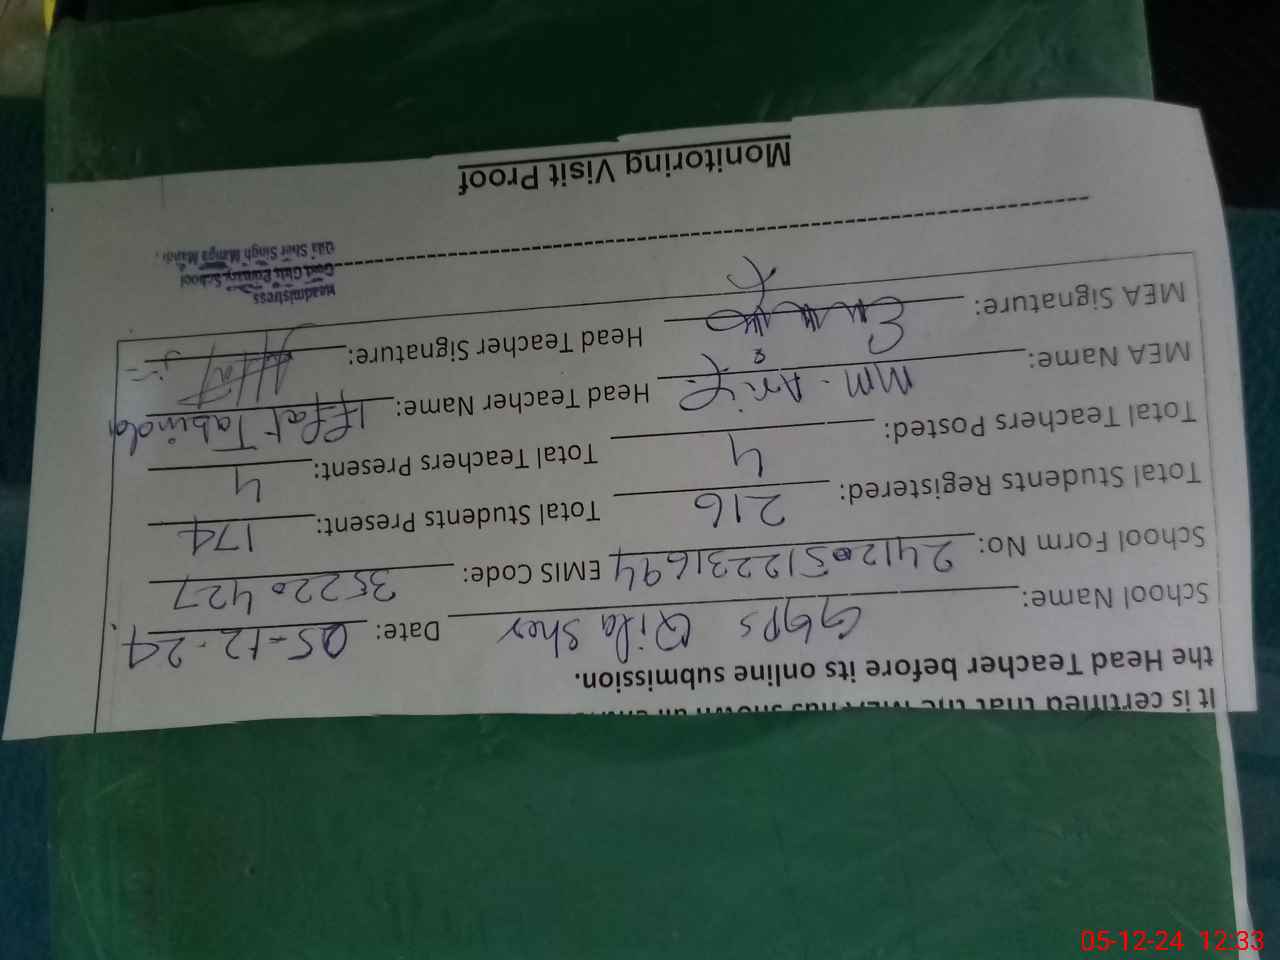 It is certified that the MEA has shown
the Head Teacher before its online submission.
School Name: GGPS Qila Sher Date: 05-12-24
School Form No: 24120512231694 EMIS Code: 35220427
Total Students Registered: 216 Total Students Present: 174
Total Teachers Posted: 4 Total Teachers Present: 4
MEA Name: MM. Arif Head Teacher Name: Iffat Tabinda
MEA Signature: Head Teacher Signature:
Headmistress
Govt Girls Primary School
Qila Sher Singh Manga Mandi.
Monitoring Visit Proof
05-12-24 12:33